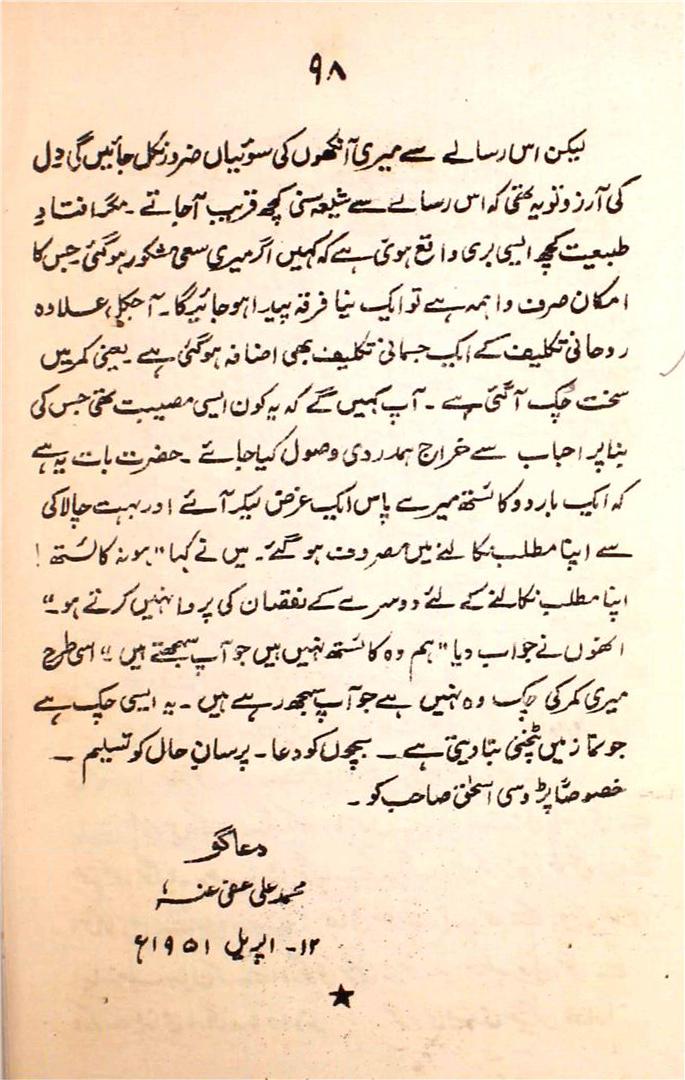 ۹۸
لیکن اس رسالے سے میری آنکھوں کی سوئیاں ضرور نکل جائیں گی دل
کی آرزو تو یہ تھی کہ اس رسالے سے شیعہ سنی کچھ قریب آجاتے ۔ مگر افتادِ
طبیعت کچھ ایسی بری واقع ہوئی ہے کہ کہیں اگر میری سعی مشکور ہوگئی جس کا
امکان صرف واہمہ ہے تو ایک نیا فرقہ پیدا ہو جائیگا ۔ آجکل علاوہ
روحانی تکلیف کے ایک جسمانی تکلیف بھی اضافہ ہوگئی ہے ۔ یعنی کمر میں
سخت چک آگئی ہے ۔ آپ کہیں گے کہ یہ کون ایسی مصیبت تھی جس کی
بنا پر احباب سے خراج ہمدردی وصول کیا جائے ۔ حضرت بات یہ ہے
کہ ایک بار دو کائستھ میرے پاس ایک غرض لیکر آئے اور بہت چالاکی
سے اپنا مطلب نکالنے میں مصروف ہو گئے ۔ میں نے کہا "ہو نہ کائستھ !
اپنا مطلب نکالنے کے لئے دوسرے کے نقصان کی پروا نہیں کرتے ہو ۔"
انھوں نے جواب دیا "ہم وہ کائستھ نہیں ہیں جو آپ سمجھتے ہیں ۔" اسی طرح
میری کمر کی چک وہ نہیں ہے جو آپ سمجھ رہے ہیں ۔ یہ ایسی چک ہے
جو نماز میں پٹخنی بتا دیتی ہے ۔ بچوں کو دعا ۔ پرسانِ حال کو تسلیم ۔
خصوصاً پڑوسی اسحٰق صاحب کو ۔
دعاگو
محمد علی عفی عنہ
۱۲ ۔ اپریل ۱۹۵۱ء